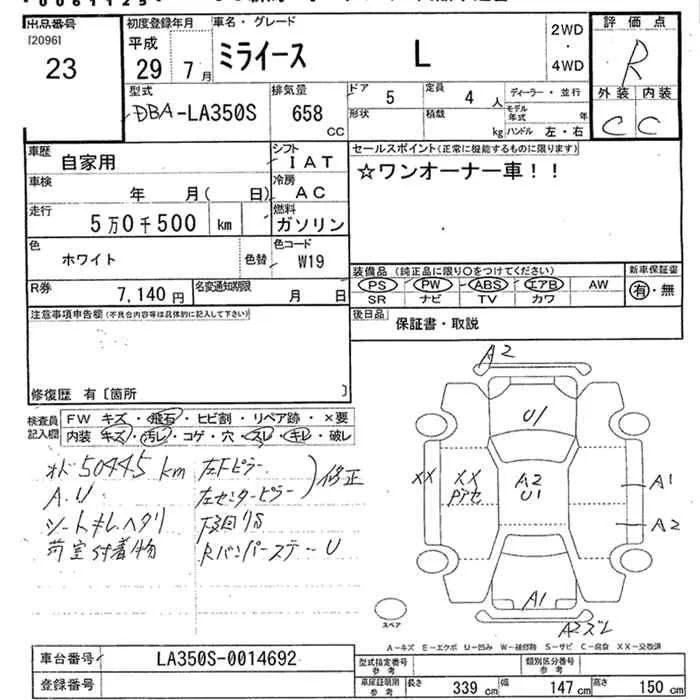 出品番号
[2096]
23
初度登録年月
平成
29年7月
車名・グレード
ミライース L
2WD
・
4WD
評価点
R
外装 内装
C C
型式
DBA-LA350S
排気量
658
CC
ドア 5
形状
定員 4 人
積載 kg
ディーラー・並行
モデル年式 年
ハンドル 左・右
車歴
自家用
シフト
IAT
車検 年 月( 日)
冷房
AC
走行
5万0千500 km
燃料
ガソリン
セールスポイント(正常に機能するものに限ります)
☆ワンオーナー車!!
色
ホワイト
色替
色コード
W19
R券
7,140円
名変通知期限
月 日
装備品 (純正品に限り○をつけてください)
PS PW ABS エアB AW
SR ナビ TV カワ
新車保証書
有・無
後日品
保証書・取説
注意事項申告欄(不具合内容等は具体的に記入して下さい)
修復歴 有 [箇所 ]
検査員記入欄
FW キズ・飛石・ヒビ割・リペア跡・×要
内装 キズ・汚レ・コゲ・穴・スレ・キレ・破レ
オド50445km
A.U
シートキレヘタリ
荷室付着物
左Fピラー
左センターピラー
修正
下回りS
RバンパーステーU
A2
U1
XX
XX
A2
U1
A1
A2
A1
A2ズレ
スペア
A-キズ E-エクボ U-凹み W-補修跡 S-サビ C-腐食 XX-交換済
車台番号
LA350S-0014692
登録番号
型式指定番号
参考
類別区分番号
参考
車庫証明用
参考
長さ 339 cm
幅 147 cm
高さ 150 cm